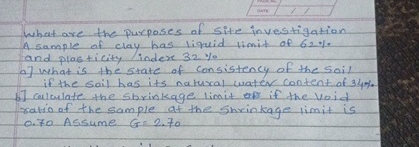 DATE
What are the purposes of site investigation
A sample of clay has liquid limit of 62%
and plasticity index 32%
a] What is the state of consistency of the soil
if the soil has its natural water content of 34%
b] calculate the shrinkage limit of if the void
ratio of the sample at the shrinkage limit is
0.70 Assume G= 2.70